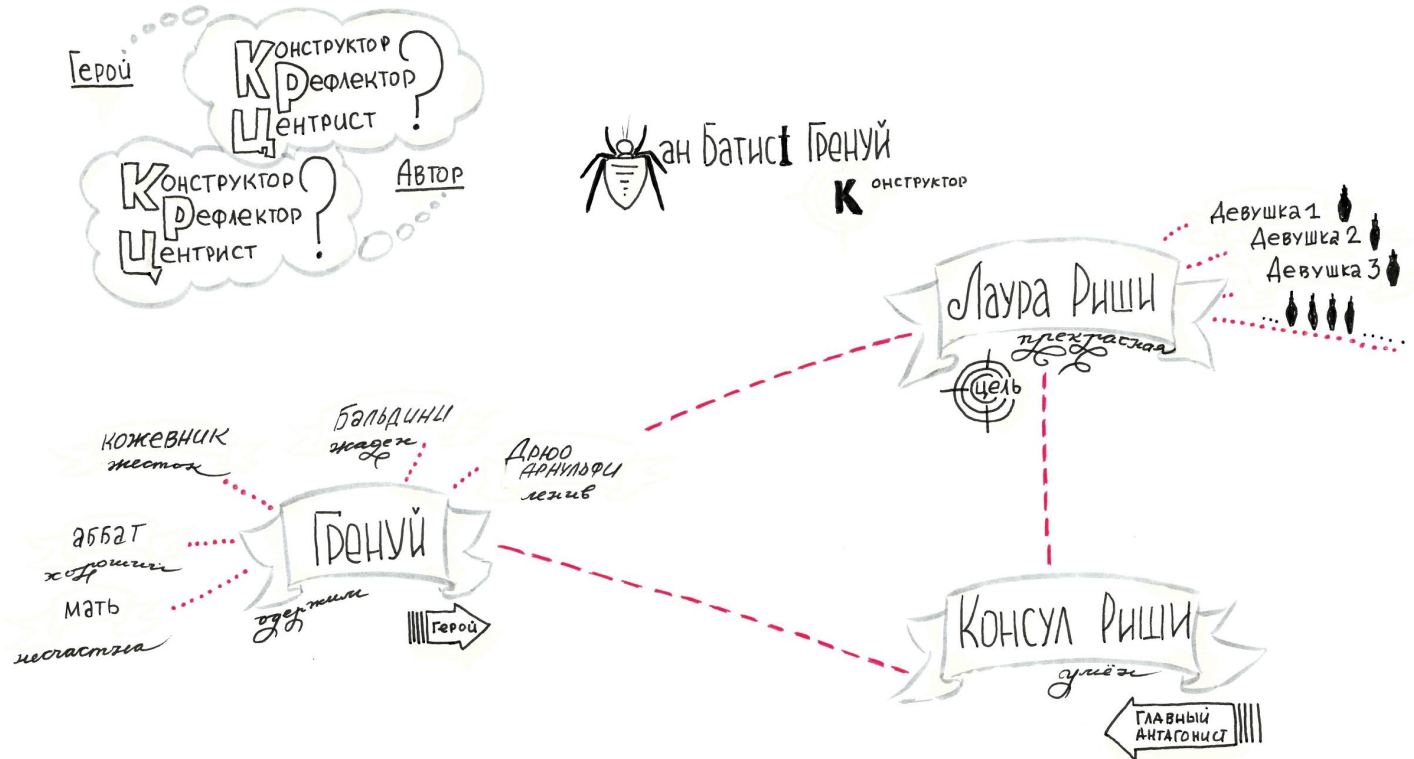 Герой
Конструктор
Рефлектор
Центрист
?
Автор
Конструктор
Рефлектор
Центрист
?
ан Батист Гренуй
Конструктор
Девушка 1
Девушка 2
Девушка 3
Лаура Риши
прекрасная
цель
кожевник
жесток
Бальдини
жаден
Дрюо
Арнульфи
ленив
аббат
хороший
мать
несчастна
Гренуй
одержим
Герой
Консул Риши
умён
Главный
антагонист